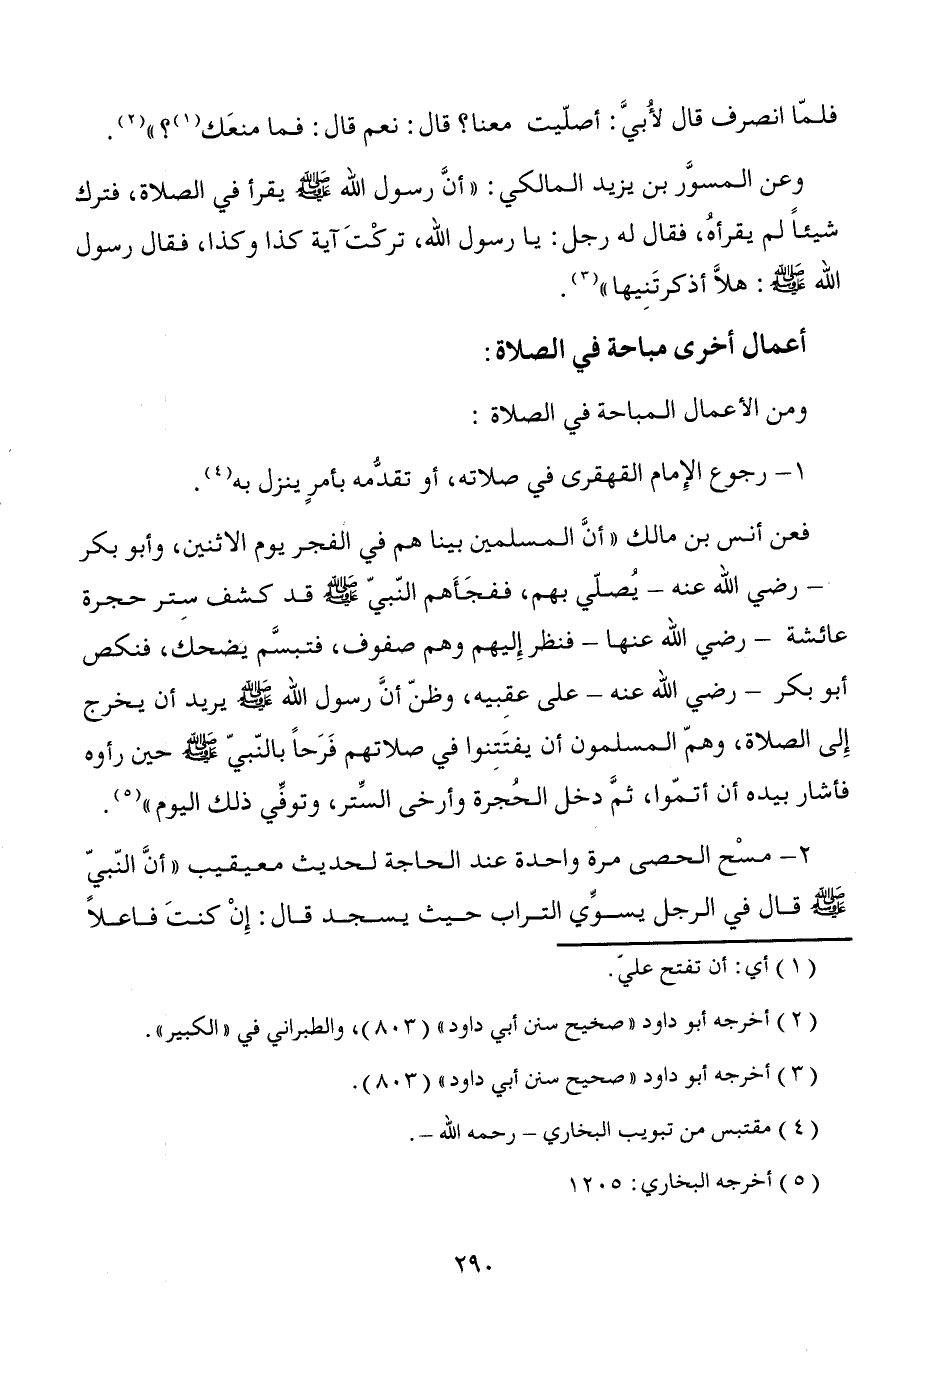 فلمّا انصرف قال لأُبيَّ: أصلّيت معنا؟ قال: نعم قال: فما منعَك(١)؟»(٢).
وعن المسوَّر بن يزيد المالكي: «أنَّ رسول الله ﷺ يقرأ في الصلاة، فترك
شيئاً لم يقرأهُ، فقال له رجل: يا رسول الله، تركْتَ آية كذا وكذا، فقال رسول
الله ﷺ: هلاَّ أذكرتَنِيها»(٣).
أعمال أخرى مباحة في الصلاة:
ومن الأعمال المباحة في الصلاة :
١- رجوع الإمام القهقرى في صلاته، أو تقدُّمه بأمرٍ ينزل به(٤).
فعن أنس بن مالك «أنَّ المسلمين بينا هم في الفجر يوم الاثنين، وأبو بكر
- رضي الله عنه - يُصلّي بهم، ففجَأَهم النّبيّ ﷺ قد كشف سِتر حجرة
عائشة - رضي الله عنها - فنظر إليهم وهم صفوف، فتبسَّم يضحك، فنكص
أبو بكر - رضي الله عنه - على عقبيه، وظنّ أنَّ رسول الله ﷺ يريد أن يخرج
إلى الصلاة، وهمّ المسلمون أن يفتَتِنوا في صلاتهم فَرَحاً بالنّبيّ ﷺ حين رأوه
فأشار بيده أن أتمّوا، ثمَّ دخل الحُجرة وأرخى السِّتر، وتوفِّي ذلك اليوم»(٥).
٢- مسْح الحصى مرة واحدة عند الحاجة لحديث معيقيب «أنَّ النّبيّ
ﷺ قال في الرجل يسوِّي التراب حيث يسجد قال: إِنْ كنتَ فاعلاً
(١) أي: أن تفتح عليّ.
(٢) أخرجه أبو داود «صحيح سنن أبي داود» (٨٠٣)، والطبراني في «الكبير».
(٣) أخرجه أبو داود «صحيح سنن أبي داود» (٨٠٣).
(٤) مقتبس من تبويب البخاري - رحمه الله -.
(٥) أخرجه البخاري: ١٢٠٥
٢٩٠